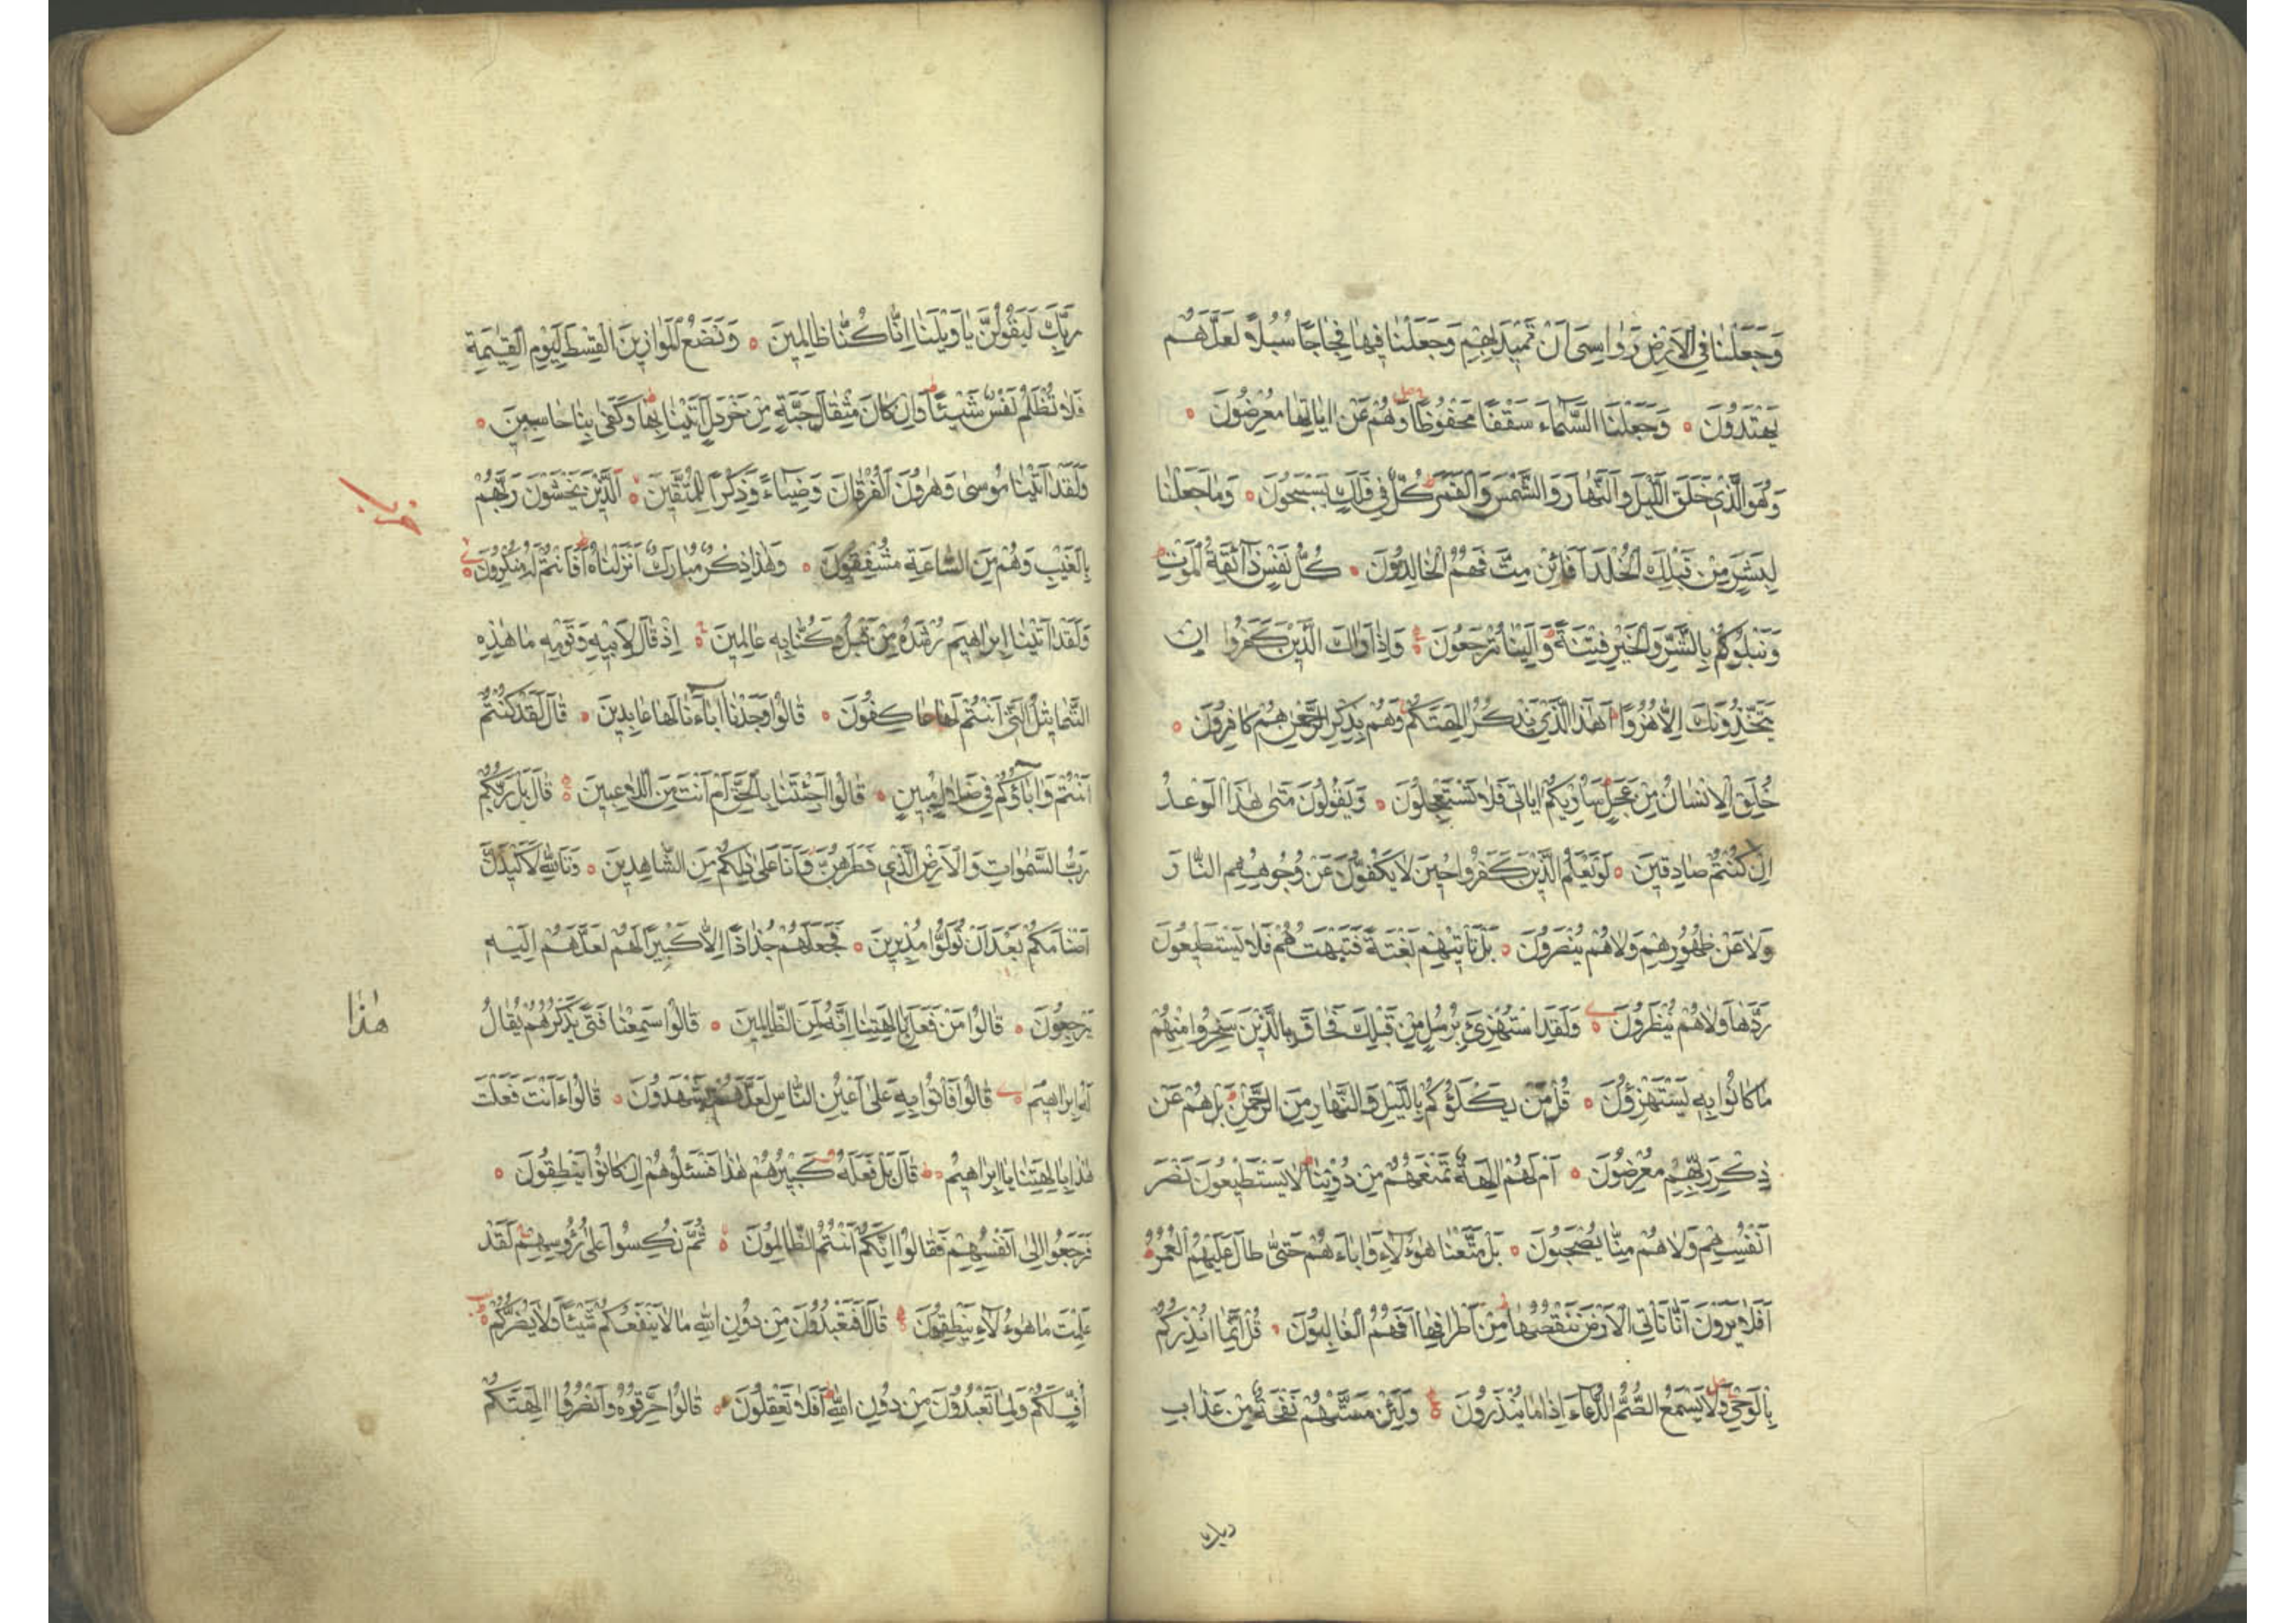 وَجَعَلْنَا فِي الْاَرْضِ رَوَاسِيَ اَنْ تَمِيْدَ بِهِمْ وَجَعَلْنَا فِيهَا فِجَاجًا سُبُلًا لَعَلَّهُمْ
يَهْتَدُوْنَ وَجَعَلْنَا السَّمَاءَ سَقْفًا مَحْفُوْظًا وَهُمْ عَنْ اٰيَاتِهَا مُعْرِضُوْنَ
وَهُوَ الَّذِي خَلَقَ اللَّيْلَ وَالنَّهَارَ وَالشَّمْسَ وَالْقَمَرَ كُلٌّ فِي فَلَكٍ يَسْبَحُوْنَ وَمَا جَعَلْنَا
لِبَشَرٍ مِنْ قَبْلِكَ الْخُلْدَ اَفَائِنْ مِتَّ فَهُمُ الْخَالِدُوْنَ كُلُّ نَفْسٍ ذَائِقَةُ الْمَوْتِ
وَنَبْلُوْكُمْ بِالشَّرِّ وَالْخَيْرِ فِتْنَةً وَاِلَيْنَا تُرْجَعُوْنَ وَاِذَا رَاٰكَ الَّذِيْنَ كَفَرُوا اِنْ
يَتَّخِذُوْنَكَ اِلَّا هُزُوًا اَهٰذَا الَّذِي يَذْكُرُ اٰلِهَتَكُمْ وَهُمْ بِذِكْرِ الرَّحْمٰنِ هُمْ كَافِرُوْنَ
خُلِقَ الْاِنْسَانُ مِنْ عَجَلٍ سَاُوْرِيْكُمْ اٰيَاتِي فَلَا تَسْتَعْجِلُوْنَ وَيَقُوْلُوْنَ مَتٰى هٰذَا الْوَعْدُ
اِنْ كُنْتُمْ صَادِقِيْنَ لَوْ يَعْلَمُ الَّذِيْنَ كَفَرُوا حِيْنَ لَا يَكُفُّوْنَ عَنْ وُجُوْهِهِمُ النَّارَ
وَلَا عَنْ ظُهُوْرِهِمْ وَلَا هُمْ يُنْصَرُوْنَ بَلْ تَأْتِيْهِمْ بَغْتَةً فَتَبْهَتُهُمْ فَلَا يَسْتَطِيْعُوْنَ
رَدَّهَا وَلَا هُمْ يُنْظَرُوْنَ وَلَقَدِ اسْتُهْزِئَ بِرُسُلٍ مِنْ قَبْلِكَ فَحَاقَ بِالَّذِيْنَ سَخِرُوا مِنْهُمْ
مَا كَانُوْا بِهِ يَسْتَهْزِؤُنَ قُلْ مَنْ يَكْلَؤُكُمْ بِاللَّيْلِ وَالنَّهَارِ مِنَ الرَّحْمٰنِ بَلْ هُمْ عَنْ
ذِكْرِ رَبِّهِمْ مُعْرِضُوْنَ اَمْ لَهُمْ اٰلِهَةٌ تَمْنَعُهُمْ مِنْ دُوْنِنَا لَا يَسْتَطِيْعُوْنَ نَصْرَ
اَنْفُسِهِمْ وَلَا هُمْ مِنَّا يُصْحَبُوْنَ بَلْ مَتَّعْنَا هٰؤُلَاءِ وَاٰبَاءَهُمْ حَتّٰى طَالَ عَلَيْهِمُ الْعُمُرُ
اَفَلَا يَرَوْنَ اَنَّا نَأْتِي الْاَرْضَ نَنْقُصُهَا مِنْ اَطْرَافِهَا اَفَهُمُ الْغَالِبُوْنَ قُلْ اِنَّمَا اُنْذِرُكُمْ
بِالْوَحْيِ وَلَا يَسْمَعُ الصُّمُّ الدُّعَاءَ اِذَا مَا يُنْذَرُوْنَ وَلَئِنْ مَسَّتْهُمْ نَفْحَةٌ مِنْ عَذَابِ
رَبِّكَ لَيَقُوْلُنَّ يَا وَيْلَنَا اِنَّا كُنَّا ظَالِمِيْنَ وَنَضَعُ الْمَوَازِيْنَ الْقِسْطَ لِيَوْمِ الْقِيٰمَةِ
فَلَا تُظْلَمُ نَفْسٌ شَيْئًا وَاِنْ كَانَ مِثْقَالَ حَبَّةٍ مِنْ خَرْدَلٍ اَتَيْنَا بِهَا وَكَفٰى بِنَا حَاسِبِيْنَ
وَلَقَدْ اٰتَيْنَا مُوْسٰى وَهٰرُوْنَ الْفُرْقَانَ وَضِيَاءً وَذِكْرًا لِلْمُتَّقِيْنَ اَلَّذِيْنَ يَخْشَوْنَ رَبَّهُمْ
بِالْغَيْبِ وَهُمْ مِنَ السَّاعَةِ مُشْفِقُوْنَ وَهٰذَا ذِكْرٌ مُبَارَكٌ اَنْزَلْنَاهُ اَفَاَنْتُمْ لَهُ مُنْكِرُوْنَ
وَلَقَدْ اٰتَيْنَا اِبْرَاهِيْمَ رُشْدَهُ مِنْ قَبْلُ وَكُنَّا بِهِ عَالِمِيْنَ اِذْ قَالَ لِاَبِيْهِ وَقَوْمِهِ مَا هٰذِهِ
التَّمَاثِيْلُ الَّتِي اَنْتُمْ لَهَا عَاكِفُوْنَ قَالُوْا وَجَدْنَا اٰبَاءَنَا لَهَا عَابِدِيْنَ قَالَ لَقَدْ كُنْتُمْ
اَنْتُمْ وَاٰبَاؤُكُمْ فِي ضَلَالٍ مُبِيْنٍ قَالُوْا اَجِئْتَنَا بِالْحَقِّ اَمْ اَنْتَ مِنَ اللَّاعِبِيْنَ قَالَ بَلْ رَبُّكُمْ
رَبُّ السَّمٰوَاتِ وَالْاَرْضِ الَّذِي فَطَرَهُنَّ وَاَنَا عَلٰى ذٰلِكُمْ مِنَ الشَّاهِدِيْنَ وَتَاللّٰهِ لَاَكِيْدَنَّ
اَصْنَامَكُمْ بَعْدَ اَنْ تُوَلُّوْا مُدْبِرِيْنَ فَجَعَلَهُمْ جُذَاذًا اِلَّا كَبِيْرًا لَهُمْ لَعَلَّهُمْ اِلَيْهِ
يَرْجِعُوْنَ قَالُوْا مَنْ فَعَلَ هٰذَا بِاٰلِهَتِنَا اِنَّهُ لَمِنَ الظَّالِمِيْنَ قَالُوْا سَمِعْنَا فَتًى يَذْكُرُهُمْ يُقَالُ
لَهُ اِبْرَاهِيْمُ قَالُوْا فَأْتُوْا بِهِ عَلٰى اَعْيُنِ النَّاسِ لَعَلَّهُمْ يَشْهَدُوْنَ قَالُوْا ءَاَنْتَ فَعَلْتَ
هٰذَا بِاٰلِهَتِنَا يَا اِبْرَاهِيْمُ قَالَ بَلْ فَعَلَهُ كَبِيْرُهُمْ هٰذَا فَسْئَلُوْهُمْ اِنْ كَانُوْا يَنْطِقُوْنَ
فَرَجَعُوْا اِلٰى اَنْفُسِهِمْ فَقَالُوْا اِنَّكُمْ اَنْتُمُ الظَّالِمُوْنَ ثُمَّ نُكِسُوْا عَلٰى رُؤُسِهِمْ لَقَدْ
عَلِمْتَ مَا هٰؤُلَاءِ يَنْطِقُوْنَ قَالَ اَفَتَعْبُدُوْنَ مِنْ دُوْنِ اللّٰهِ مَا لَا يَنْفَعُكُمْ شَيْئًا وَلَا يَضُرُّكُمْ
اُفٍّ لَكُمْ وَلِمَا تَعْبُدُوْنَ مِنْ دُوْنِ اللّٰهِ اَفَلَا تَعْقِلُوْنَ قَالُوْا حَرِّقُوْهُ وَانْصُرُوْا اٰلِهَتَكُمْ